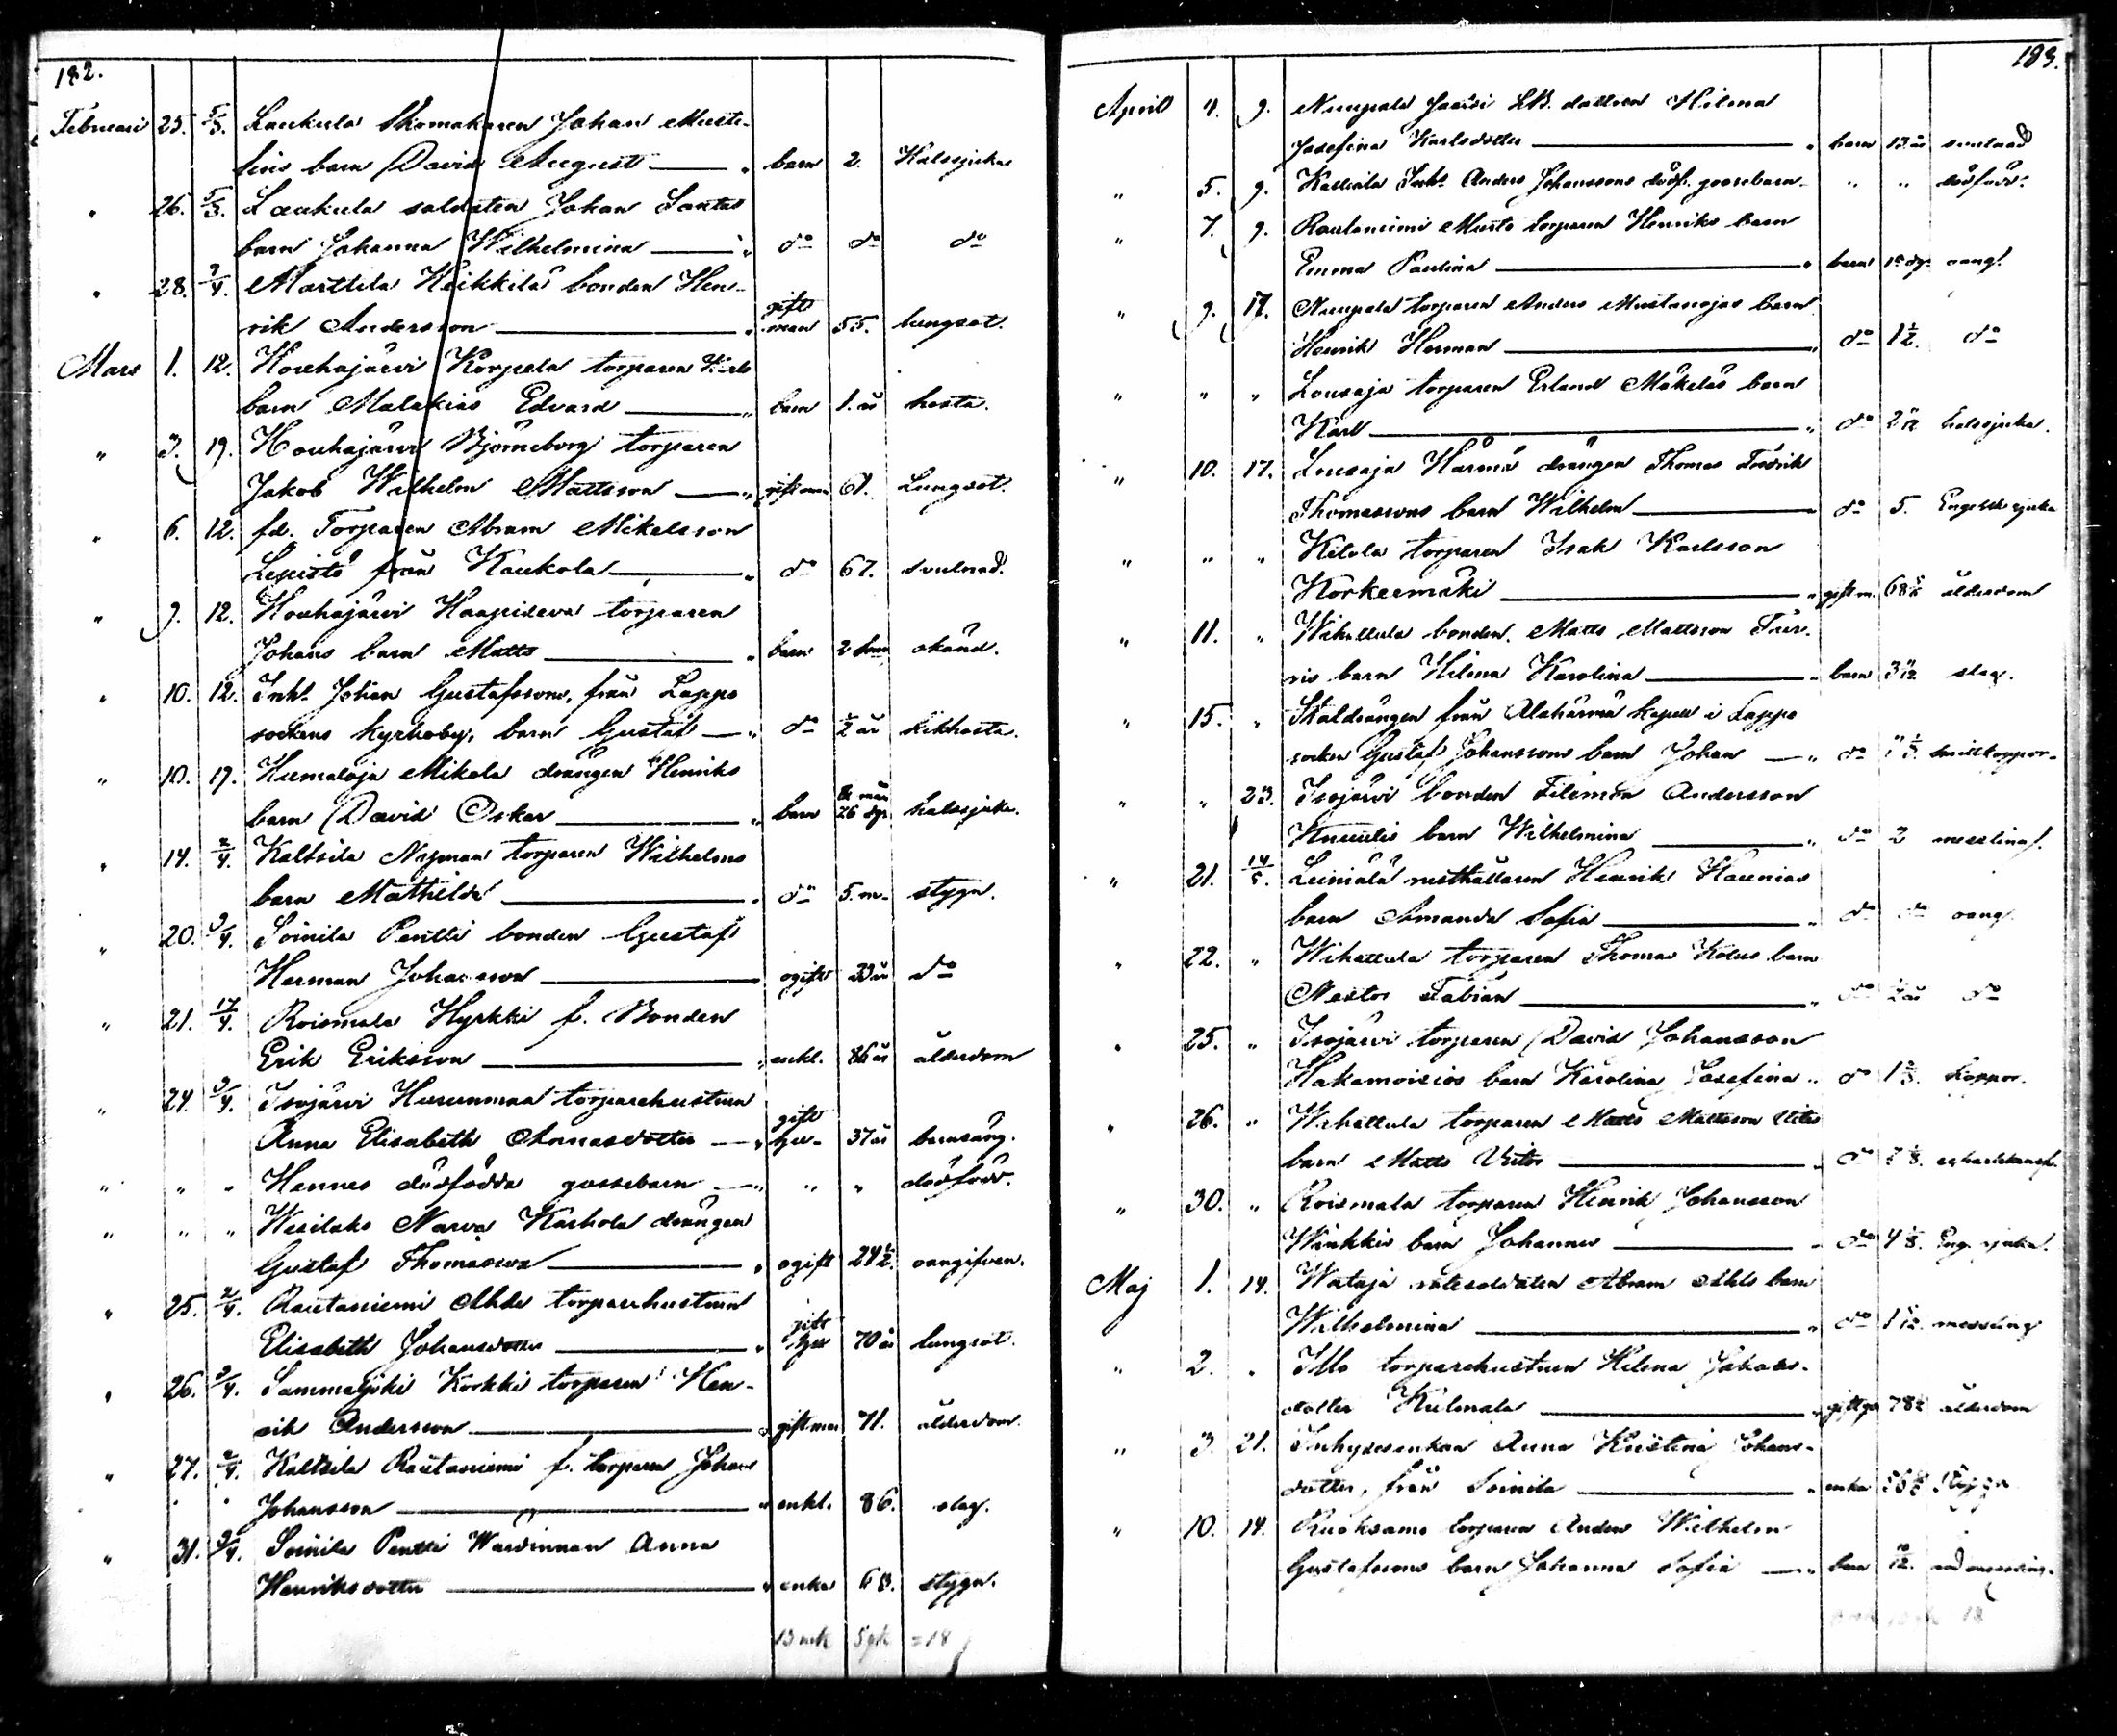 182.
Februari 25. 5/3. Laukula Skomakaren Johan Muste-
lins barn David August " barn 2. Halssjuka
" 26. 5/3. Laukula soldaten Johan Santas
barn Johanna Wilhelmina " do do do
" 28. 9/4. Marttila Heikkilä bonden Hen-
rik Andersson " gift man 55. lungsot.
Mars 1. 12. Houhajärvi Korpela torparen Karls
barn Malakias Edvard " barn 1. år hosta.
" 3. 19. Houhajärvi Björneborg torparen
Jakob Wilhelm Mattsson " gift man 61. Lungsot.
" 6. 12. fd. Torparen Abram Mikelsson
Lepistö från Kaukola " do 67. svulnad.
" 9. 12. Houhajärvi Haapideva torparen
Johans barn Matts " barn 2 okänd.
" 10. 12. Inh. Johan Gustafssons, från Lappo
sockens kyrkoby, barn Gustaf " do 1/2 år kikhosta.
" 10. 19. Humaloja Mikola drängen Henriks
barn David Oskar " barn 26 dgr halssjuka.
" 14. 2/4. Kaltsila Nyman torparen Wilhelms
barn Mathilda " do 5. m. stygn.
" 20. 9/4. Soinila Pentti bonden Gustaf
Herman Johansson ogift 33 år do
" 21. 17/4. Roismala Hyrkki f. Bonden
Erik Eriksson " enkl. 86 år ålderdom
" 24. 9/4. Isojärvi Hurunmaa torparehustrun
Anna Elisabeth Annasdotter " gift 37 år barnsäng.
" " " Hennes dödfödda gossebarn " " " dödfödd.
" " " Wesilaks Narva Karhola drängen
Gustaf Thomasson " ogift 24 1/2. oangifven.
" 25. 2/4. Rautaniemi Ahde torparehustrun
Elisabeth Johansdotter " gift 70 år lungsot.
" 26. 9/4. Sammaljoki Korkki torparen Hen-
rik Andersson " gift man 71. ålderdom.
" 27. 2/4. Kaltsila Rautaniemi f. torparen Johan
Johansson " enkl. 86. slag.
" 31. 9/4. Soinila Pentti Wärdinnan Anna
Henriksdotter " enka 63. stygn.
183.
April 4. 9. Nuupala Jaakoi dottren Hilma
Josefina Karlsdotter " barn 13 år svulnad
" 5. 9. Kaltsila Inh. Anders Johanssons dödf. gossebarn " " dödfödd.
" 7. 9. Rautaniemi Musto torparen Henriks barn
Emma Paulina " barn oang.
" 9. 17. Nuupala torparen Anders Mustanojas barn
Henrik Herman " do 1 1/2. do
" " " Lousaja torparen Erland Mäkeläs barn
Karl " do halssjuka.
" 10. 17. Lousaja Härmä drängen Thomas Fredrik
Thomassons barn Wilhelm do 5. Engelska sjuka
" " " Kilola torparen Isak Karlsson
Korkeemäki " gift m. ålderdom
" 11. " Wihattula bonden Matts Mattsson
ris barn Hilma Karolina " barn slag.
" 15. " Staldrängen från Alahärmä kapell i Lappo
socken Gustaf Johanssons barn Johan " do smittkoppor.
" " 23. Isojärvi bonden Filemon Andersson
Knuutis barn Wilhelmina " do 2 messling.
" 21. 14/5. Leiniälä rusthållaren Henrik Haunias
barn Amanda Sofia " do do oang.
" 22. " Wihattula torparen Thomas barn
Nestor Fabian " do do
" 25. " Isojärvi torparen David Johansson
Hakamoisios barn Karolina Josefina " do koppor.
" 26. " Wihattula torparen Matts Mattsson
barn Matts " do
" 30. " Roismala torparen Henrik Johansson
Winkkis barn Johannes " do Eng. sjukan.
Maj 1. 14. Wataja rotesoldaten Abram Ahls barn
Wilhelmina " do messling
" 2. " Illo torparehustrun Helena Jakobs-
dotter Kulmala " ålderdom
" 3. 21. Inhysesenkan Anna Kristina Johans-
dotter, från Soinila " enka stygn
" 10. 14. Ruoksamo torparen Anders Wilhelm
Gustafssons barn Johanna Sofia " barn